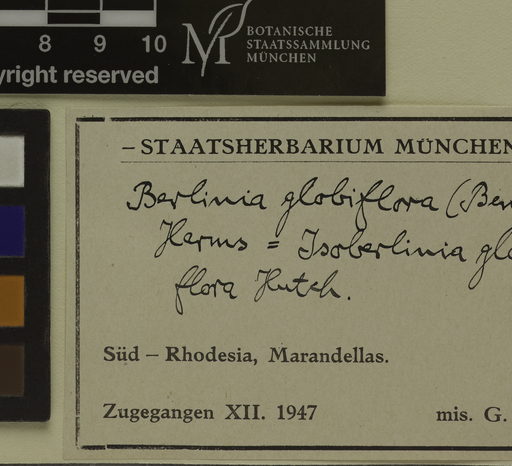 8 9 10
yright reserved
M BOTANISCHE
STAATSSAMMLUNG
MÜNCHEN
– STAATSHERBARIUM MÜNCHEN
Berlinia globiflora (Ben
Harms = Isoberlinia glo
flora Hutch.
Süd – Rhodesia, Marandellas.
Zugegangen XII. 1947 mis. G.